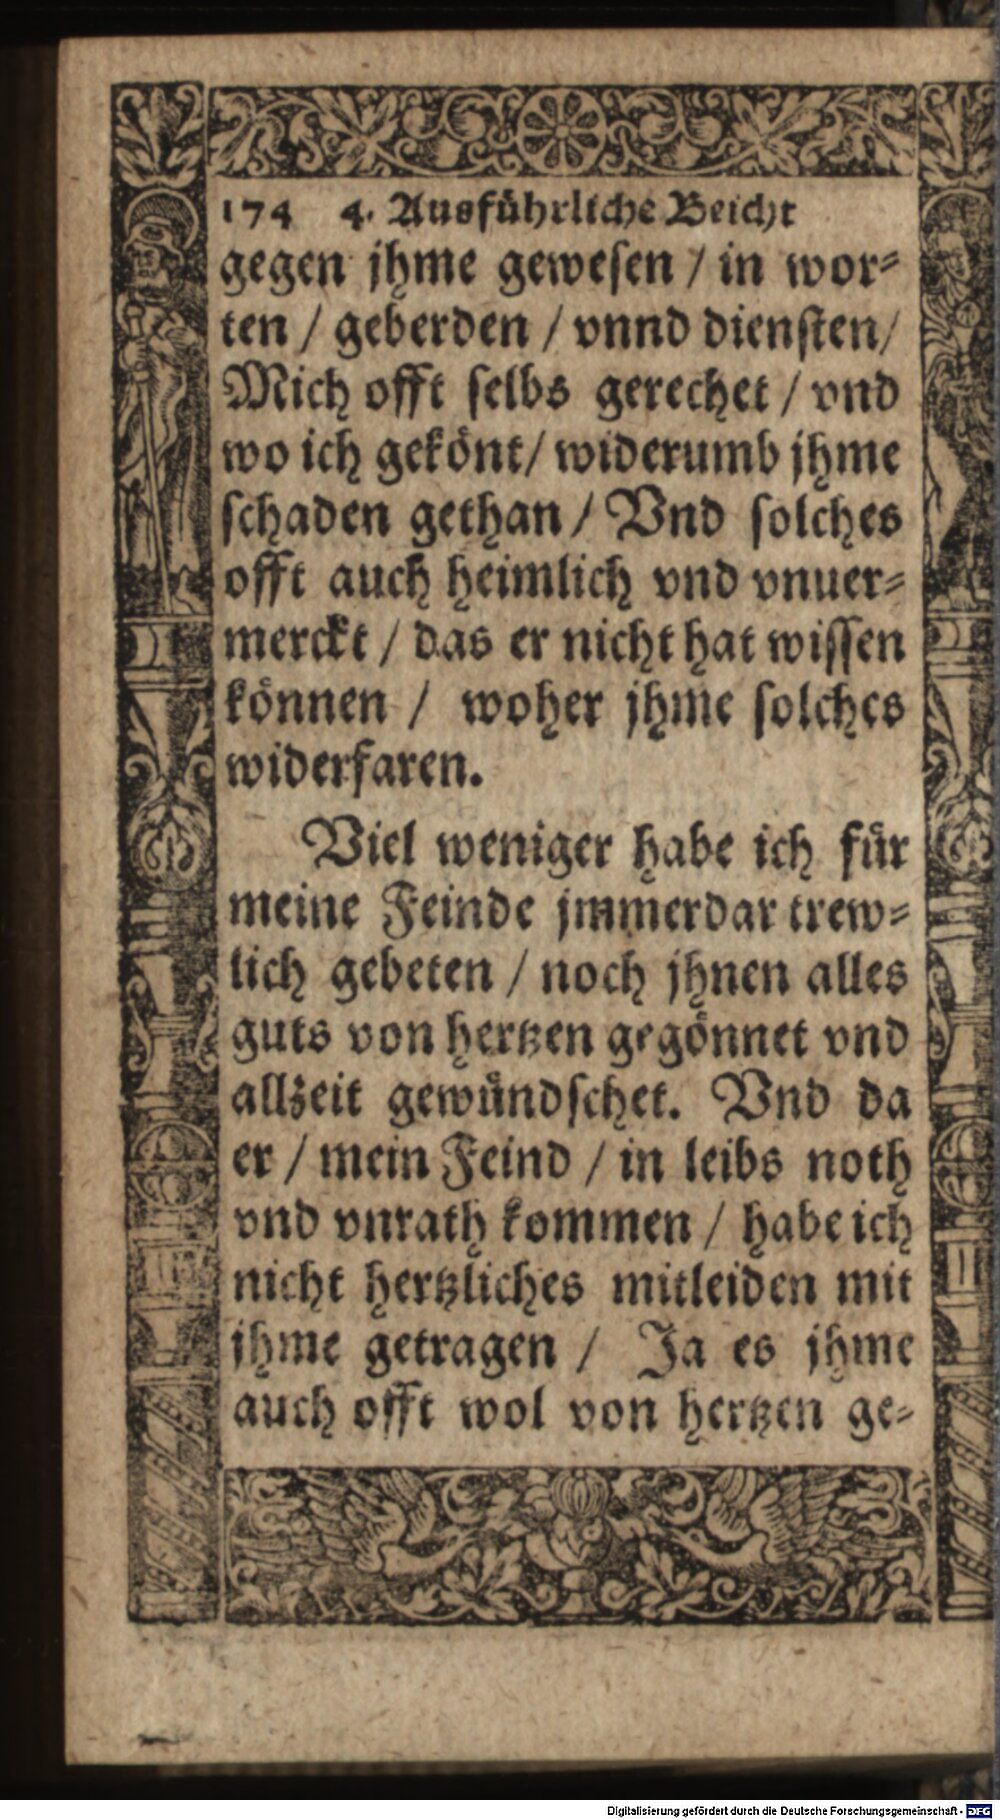 174 4. Ausführliche Beicht
gegen jhme gewesen / in wor-
ten / geberden / vnnd diensten /
Mich offt selbs gerechet / vnd
wo ich gekönt / widerumb jhme
schaden gethan / Vnd solches
offt auch heimlich vnd vnuer-
merckt / das er nicht hat wissen
können / woher jhme solches
widerfaren.
Viel weniger habe ich für
meine Feinde jmmerdar trew-
lich gebeten / noch jhnen alles
guts von hertzen gegönnet vnd
allzeit gewündschet. Vnd da
er / mein Feind / in leibs noth
vnd vnrath kommen / habe ich
nicht hertzliches mitleiden mit
jhme getragen / Ja es jhme
auch offt wol von hertzen ge-
Digitalisierung gefördert durch die Deutsche Forschungsgemeinschaft - DFG